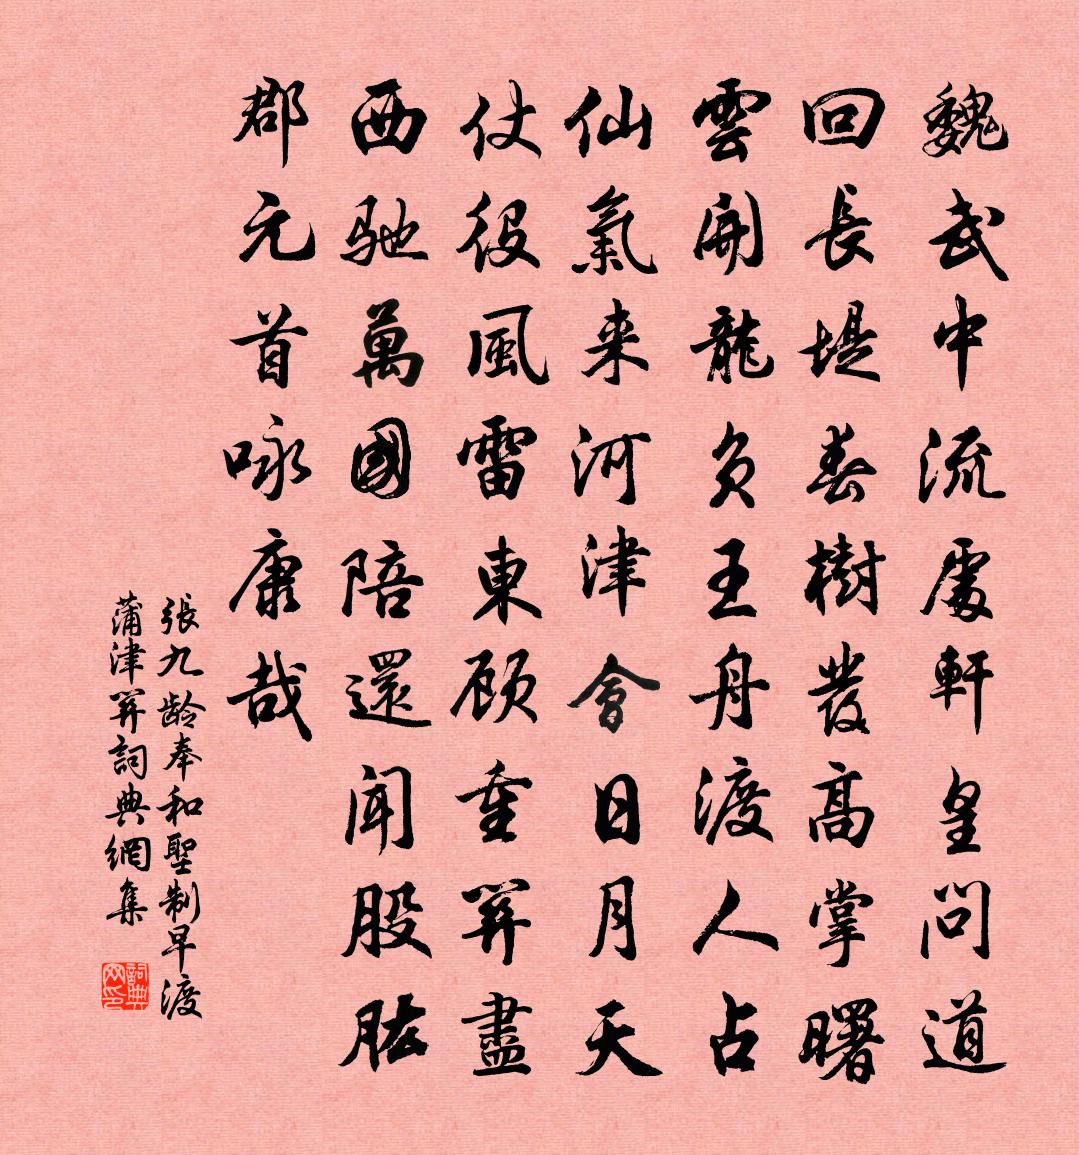 魏武中流處軒皇問道
回長堤春樹發高掌曙
雲開龍負王舟渡人占
仙氣来河津會日月天
仗役風雷東顧重關盡
西馳萬國陪還聞股肱
郡元首咏康哉
張九齡奉和聖制早渡
蒲津關詞典網集
詞典网印